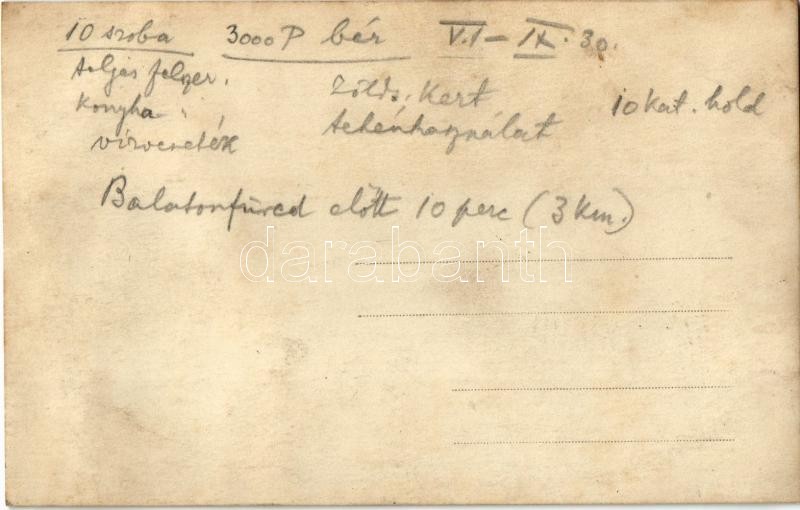 10 szoba 3000 P bér V.1 – IX. 30.
teljes felszer.
konyha "
vízvezeték
Zölds. kert
tehénhasználat
10 kat. hold
Balatonfüred előtt 10 perc (3 km.)
darabanth